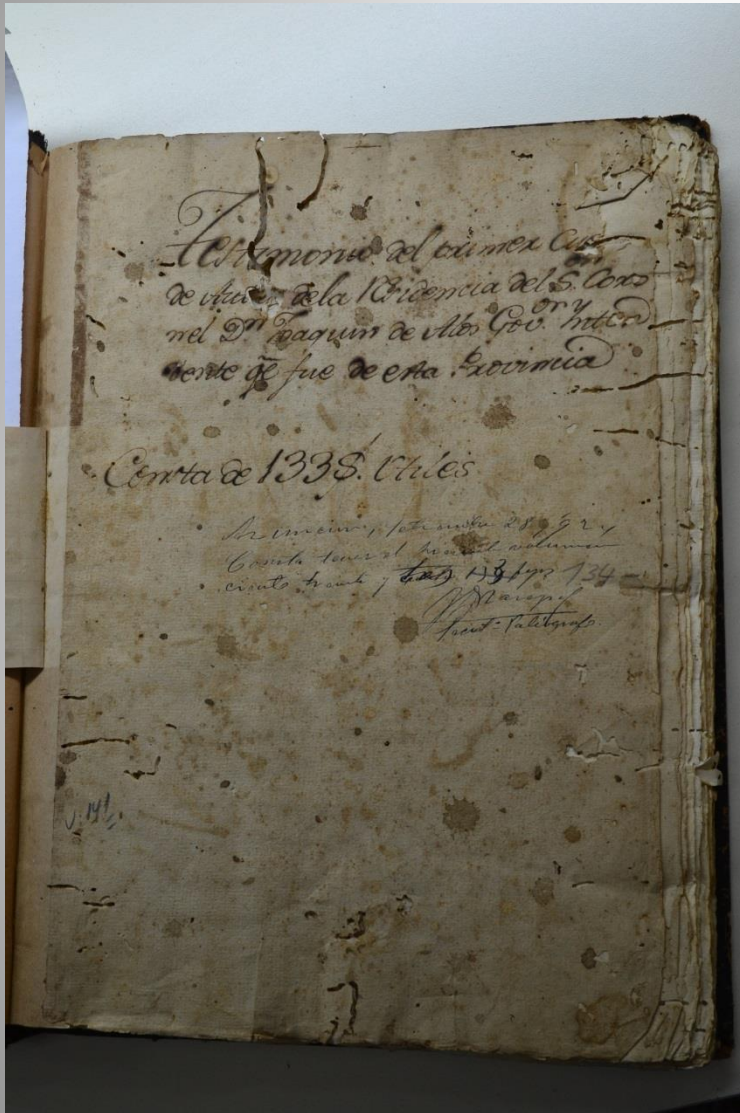 Testimonio del primer Cuer
de Autos de la Residencia del S.ᵒʳ Coro
nel Dⁿ Joaquin de Alós Gov.ᵒʳ y Inten
dente q̃ fue de esta Provincia
Consta de 133 f.ˢ utiles
Asuncion, setiembre 28, 92
Consta tener el presente volumen
ciento treinta y 134
V. 141.